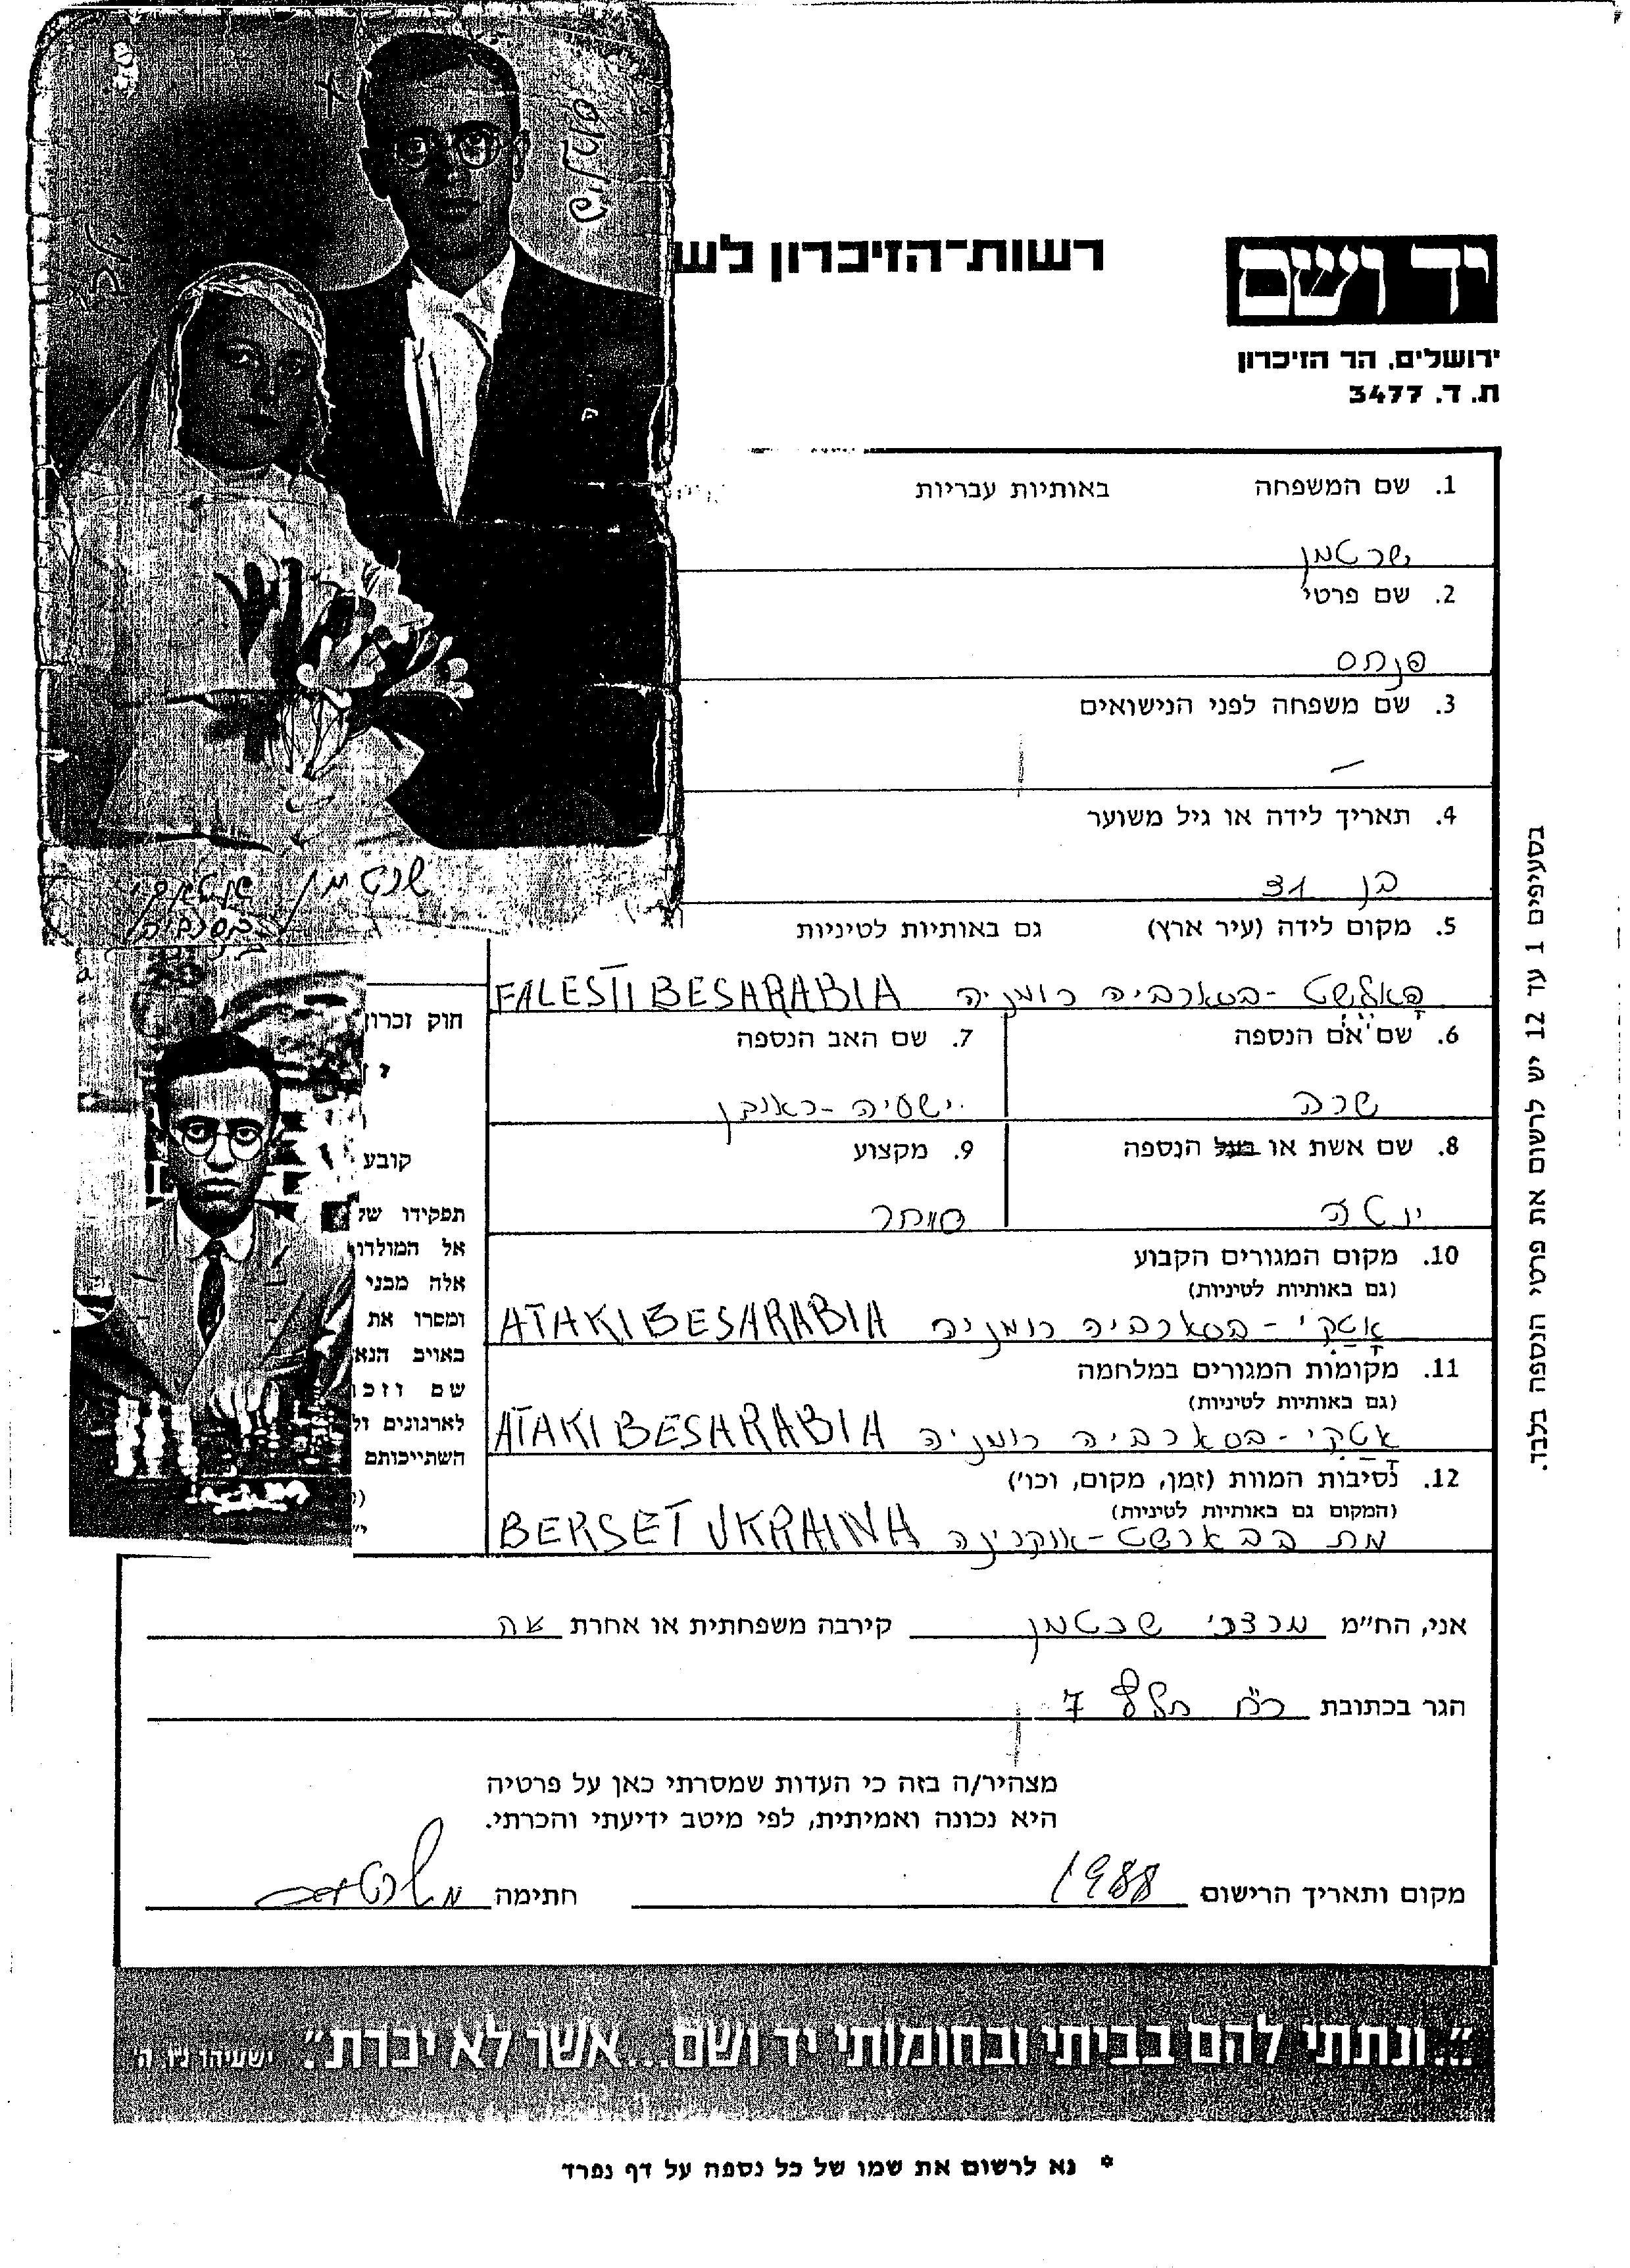 רשות־הזיכרון לש
יד ושם
ירושלים, הר הזיכרון
ת. ד. 3477
1. שם המשפחה באותיות עבריות
שרטמן
2. שם פרטי
פנחס
3. שם משפחה לפני הנישואים
–
4. תאריך לידה או גיל משוער
בן 31
5. מקום לידה (עיר ארץ) גם באותיות לטיניות
פאלשט - בסארביה רומניה FALESTI BESARABIA
6. שם אם הנספה
שרה
7. שם האב הנספה
ישעיה - ראובן
8. שם אשת או בעל הנספה
יטה
9. מקצוע
סוחר
10. מקום המגורים הקבוע
(גם באותיות לטיניות)
אטקי - בסארביה רומניה ATAKI BESARABIA
11. מקומות המגורים במלחמה
(גם באותיות לטיניות)
אטקי - בסארביה רומניה ATAKI BESARABIA
12. נסיבות המוות (זמן, מקום, וכו')
(המקום גם באותיות לטיניות)
מת בבארשט - אוקרינה BERSET UKRAINA
חוק זכרון
קובע
תפקידו של
אל המולדו
אלה מבני
ומסרו את
באויב הנא
שם וזכ
לארגונים ול
השתייכותם
בסעיפים 1 עד 12 יש לרשום את פרטי הנספה בלבד.
אני, הח״מ מרדכי שרטמן קירבה משפחתית או אחרת אח
הגר בכתובת רח' 7
מצהיר/ה בזה כי העדות שמסרתי כאן על פרטיה
היא נכונה ואמיתית, לפי מיטב ידיעתי והכרתי.
מקום ותאריך הרישום 1988 חתימה
״...ונתתי להם בביתי ובחומותי יד ושם...אשר לא יכרת״. ישעיהו נו, ה'
* נא לרשום את שמו של כל נספה על דף נפרד